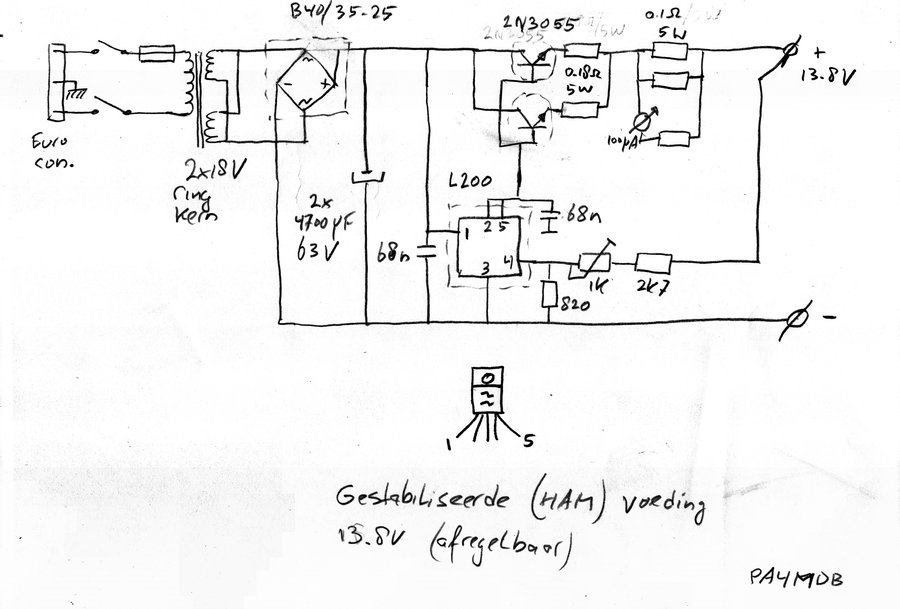 B40/35-25
2N3055
0.1Ω
5W
0.18Ω
5W
+
13.8V
100µA
Euro
con.
2x18V
ring
kern
2x
4700µF
63V
68n
L200
1
2 5
4
3
68n
1K
2K7
820
-
1
5
Gestabiliseerde (HAM) voeding
13.8V (afregelbaar)
PA4MDB